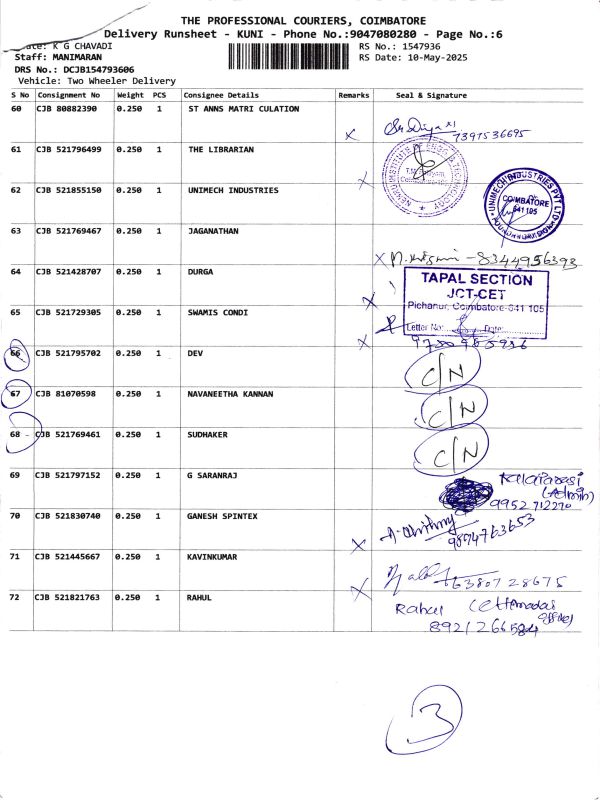 THE PROFESSIONAL COURIERS, COIMBATORE
Delivery Runsheet - KUNI - Phone No.:9047080280 - Page No.:6
K G CHAVADI
RS No.: 1547936
Staff: MANIMARAN
RS Date: 10-May-2025
DRS No.: DCJB154793606
Vehicle: Two Wheeler Delivery
S No Consignment No Weight PCS Consignee Details Remarks Seal & Signature
60 CJB 80882390 0.250 1 ST ANNS MATRI CULATION x
7397536695
61 CJB 521796499 0.250 1 THE LIBRARIAN x
62 CJB 521855150 0.250 1 UNIMECH INDUSTRIES
UNIMECH INDUSTRIES PVT LTD
COIMBATORE
641 105
63 CJB 521769467 0.250 1 JAGANATHAN x
8344956393
64 CJB 521428707 0.250 1 DURGA x
TAPAL SECTION
JCT-CET
Pichanur, Coimbatore-641 105
Letter No: Date:
65 CJB 521729305 0.250 1 SWAMIS CONDI x
66 CJB 521795702 0.250 1 DEV C/N
67 CJB 81070598 0.250 1 NAVANEETHA KANNAN C/N
68 - CJB 521769461 0.250 1 SUDHAKER C/N
69 CJB 521797152 0.250 1 G SARANRAJ
Kalaiarasi
(Admin)
9952712270
70 CJB 521830740 0.250 1 GANESH SPINTEX x
9894763653
71 CJB 521445667 0.250 1 KAVINKUMAR x
6380728675
72 CJB 521821763 0.250 1 RAHUL
Rahul
8921266584
3